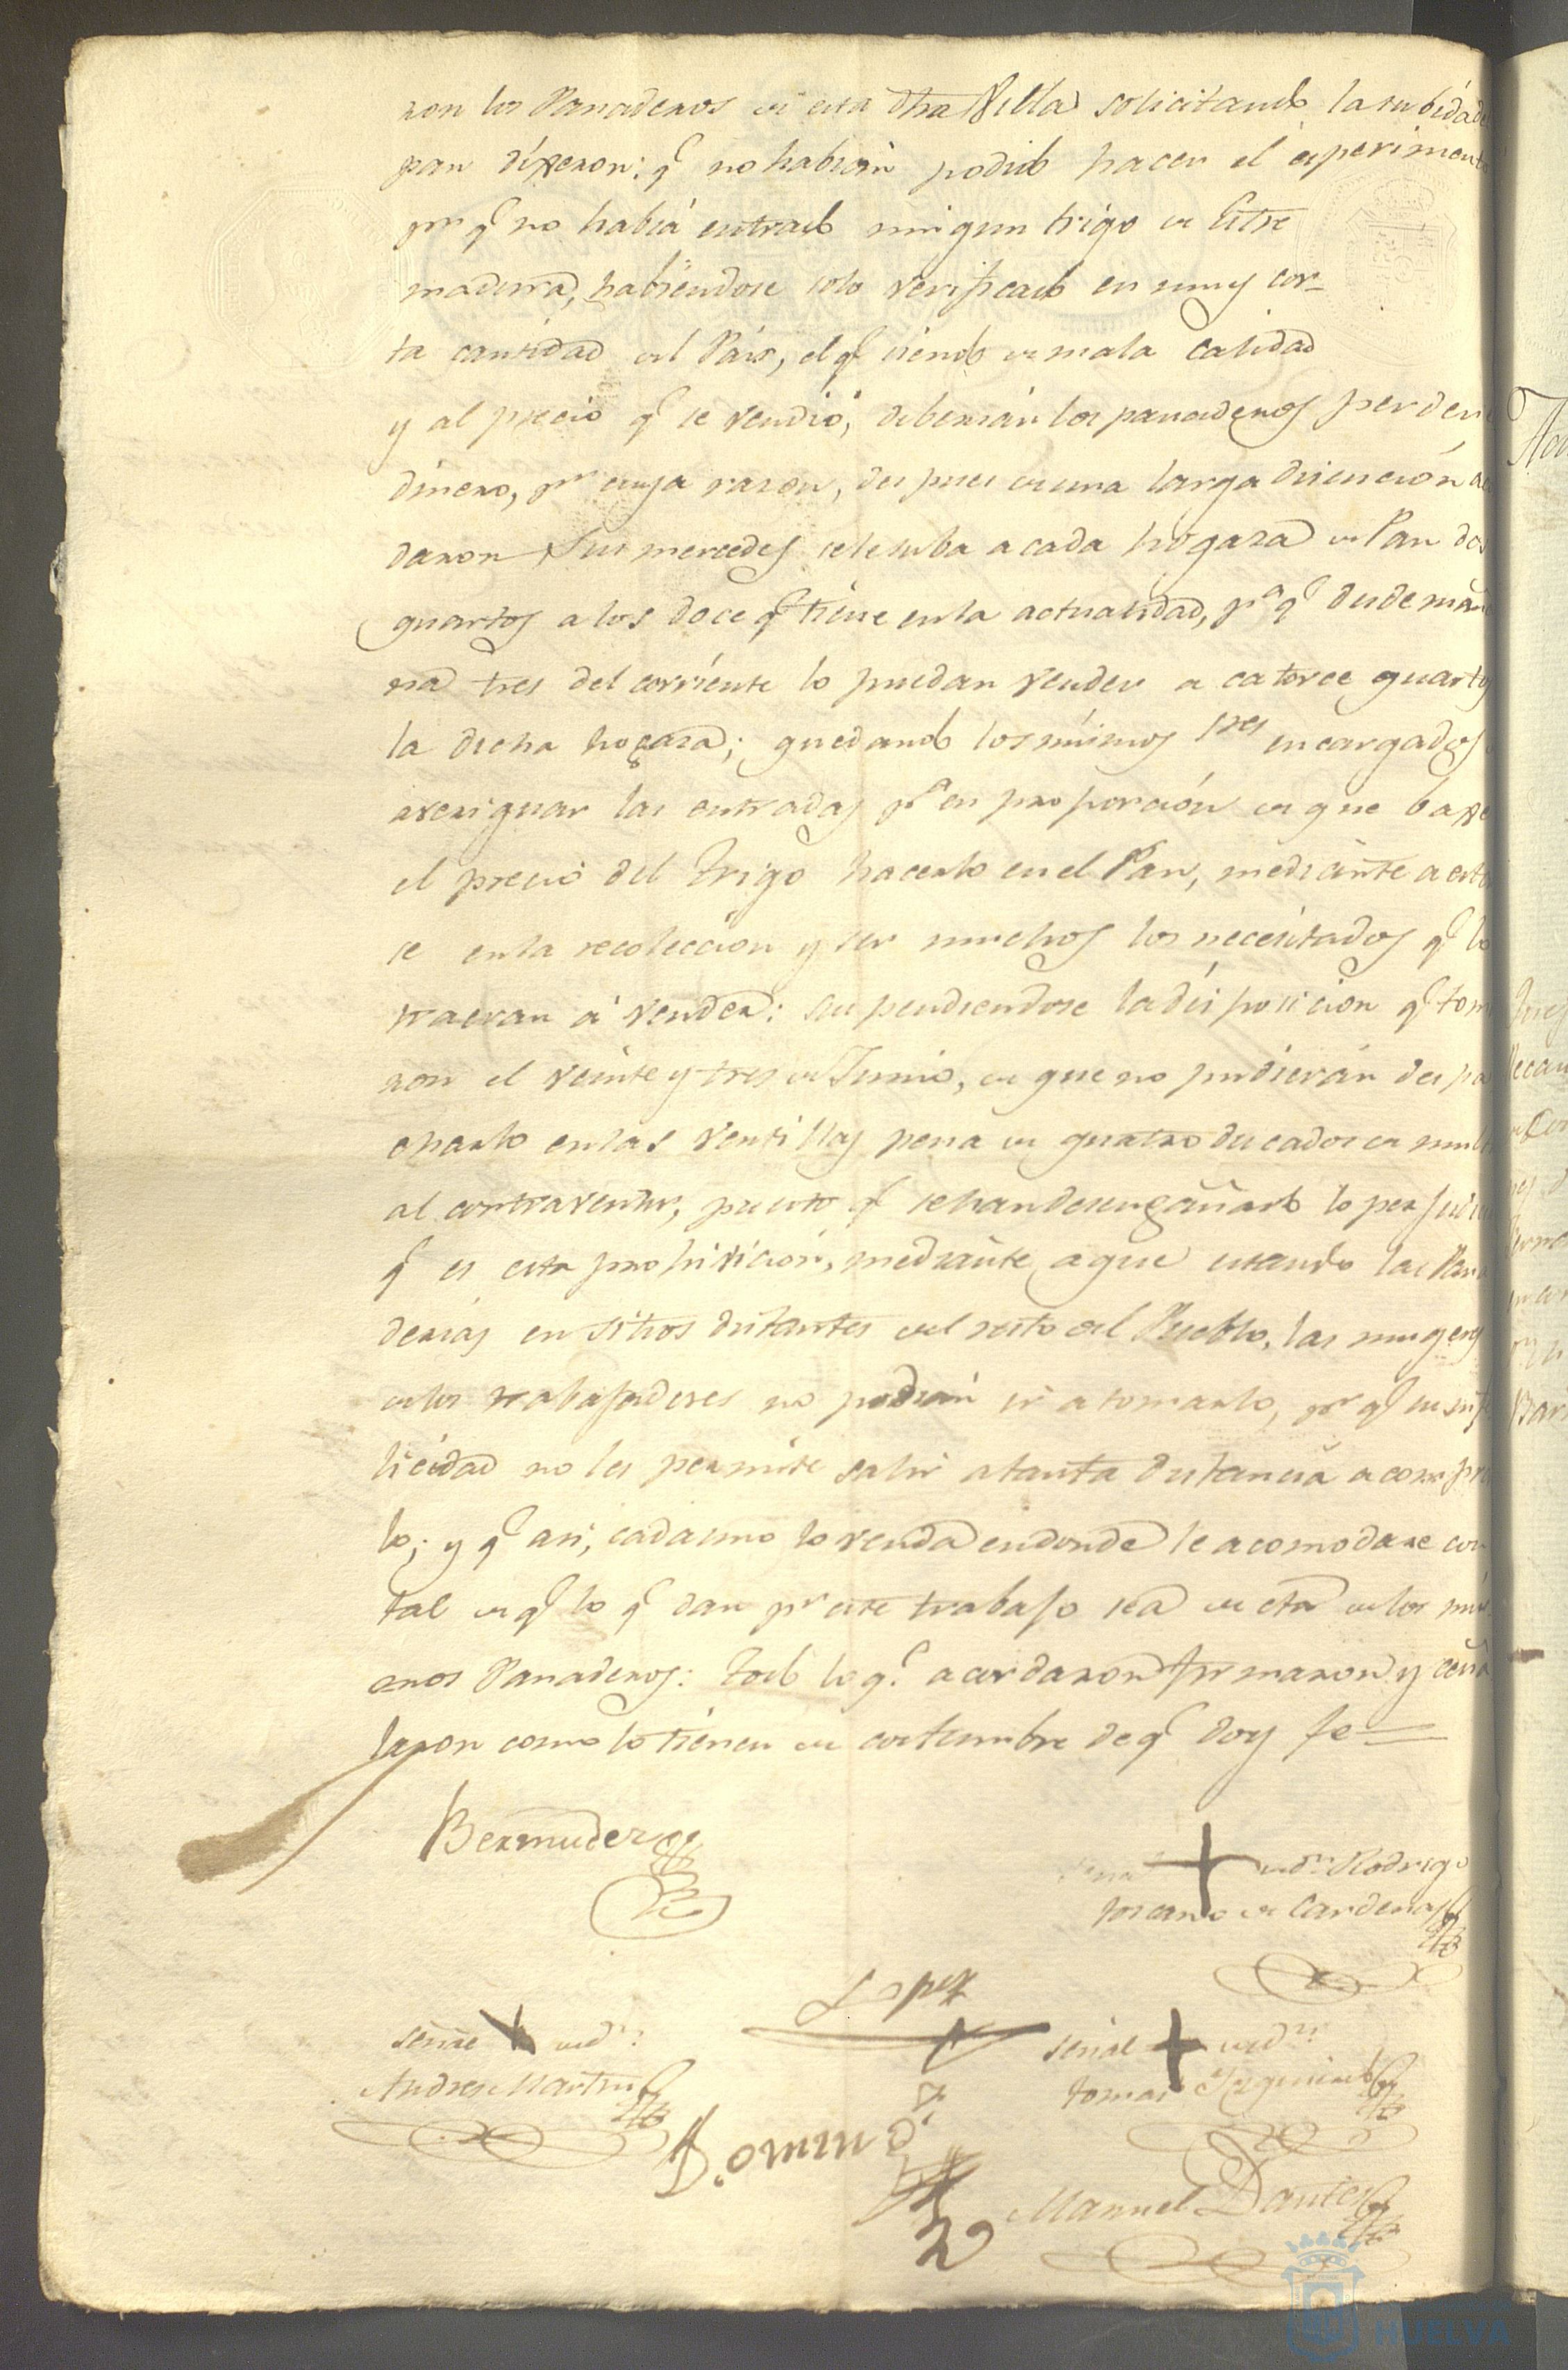 ron los Panaderos de esta dha Villa solicitando la subida de
pan dixeron: q.e no habian podido hacer el esperimento
pr. q.e no habia entrado ningun trigo de Estre
madura, habiendose solo verificado en muy cor-
ta cantidad del Pais, el q.e siendo de mala calidad
y al precio q.e se vendió, deberian los panaderos perder
dinero, pr. cuya razon, despues de una larga discucion acor
daron Sus mercedes se le suba a cada hogaza de Pan dos
quartos a los doce q.e tiene en la actualidad, pa. q.e desde maña
na tres del corriente lo puedan vender a catorce quartos
la dicha hogaza; quedando los mismos sres encargados
averiguar las entradas pa. en proporción de que baxe
el precio del trigo hacerlo en el Pan, mediante a estar
se en la recoleccion y ser muchos los necesitados q.e lo
traeran á vender: suspendiendose la disposicion q.e toma
ron el veinte y tres de Junio, de que no pudieran despa
charlo en las ventillas pena de quatro ducados de multa
al contraventor, puesto q.e se han desengañado lo perjudicial
q.e es esta prohivicion, mediante a que estando las Pana
derias en sitios distantes del resto del Pueblo, las mugeres
de los trabajadores no podrian ir a tomarlo, pr. q.e su infe
licidad no les permite salir a tanta distancia a comprar
lo; y q.e asi, cada uno lo venda en donde le acomodare con
tal de q.e lo q.e dan pr. este trabajo sea de cta de los mis
mos Panaderos: todo lo q.e acordaron firmaron y seña
laron como lo tienen de costumbre de q.e doy fe
Bermudez
Señal + de dn. Rodrigo
toscano de Cardenas
Lopez
señal + de dn.
Andres Martin
señal + de dn.
tomas Izquierdo
Doming.
Manuel Dantes
HUELVA